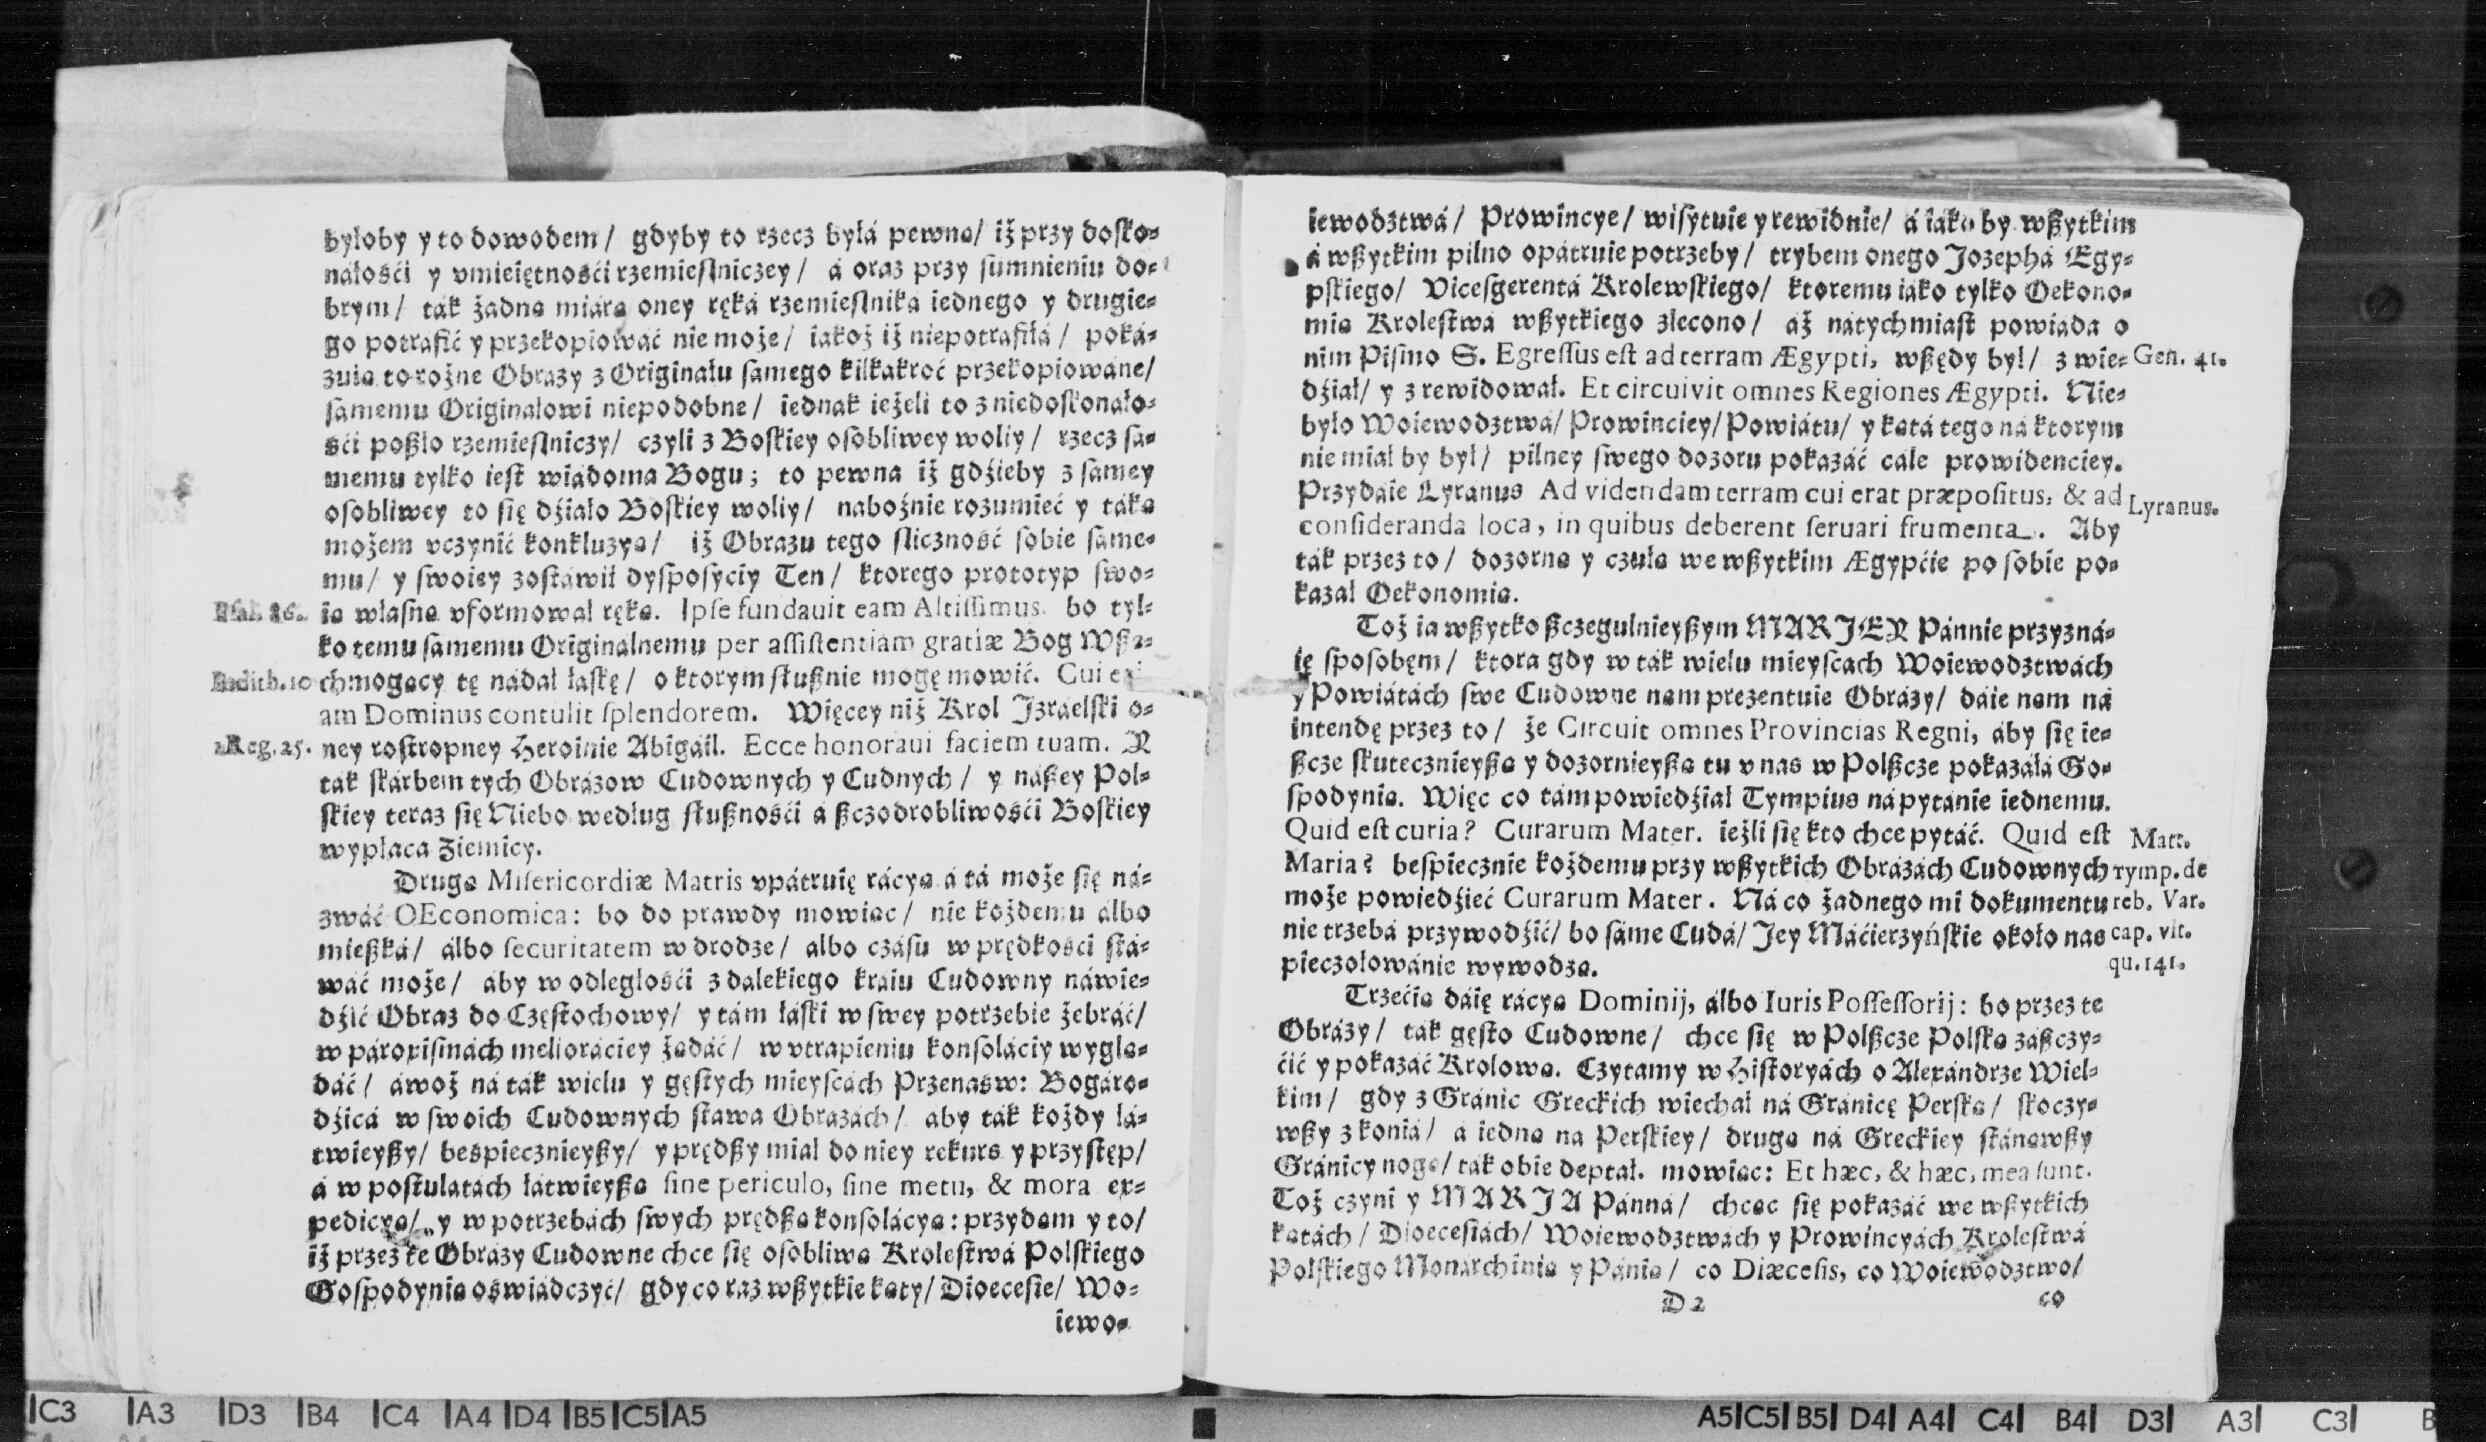 byłoby y to dowodem/ gdyby to rzecz byłá pewna/ iż przy dosko-
náłośći y vmieiętnośći rzemieslniczey/ á oraz przy sumnieniu do-
brym/ ták żadną miárą oney ręká rzemieslniká iednego y drugie-
go potrafić y przekopiowáć nie może/ iákoż iż niepotrafiłá/ poká-
zuią to rożne Obrazy z Originału sámego kilkakroć przekopiowáne/
sámemu Originałowi niepodobne/ iednák ieżeli to z niedoskonało-
śći poszło rzemieslniczy/ czyli z Boskiey osobliwey woliy/ rzecz sá-
memu tylko iest wiádoma Bogu; to pewna iż gdźieby z sámey
osobliwey to się dźiało Boskiey woliy/ nabożnie rozumieć y táką
możem vczynić konkluzyą/ iż Obrazu tego sliczność sobie sáme-
mu/ y swoiey zostáwił dysposyciy Ten/ ktorego prototyp swo-
Psal. 86. ią własną vformował ręką. Ipse fundauit eam Altissimus. bo tyl-
ko temu sámemu Originálnemu per assistentiam gratiæ Bog Wsze-
Iudith. 10 chmogący tę nádał łáskę/ o ktorym słusznie mogę mowić. Cui eti-
am Dominus contulit splendorem. Więcey niż Krol Izráelski o-
1. Reg. 25. ney rostropney Heroinie Abigáil. Ecce honoraui faciem tuam. Y
ták skárbem tych Obrázow Cudownych y Cudnych/ y nászey Pol-
skiey teraz się Niebo według słusznośći á szczodrobliwośći Boskiey
wypłaca Ziemicy.
Drugą Misericordiæ Matris vpátruię rácyą á tá może się ná-
zwáć OEconomica: bo do prawdy mowiąc/ nie kożdemu álbo
mieszká/ álbo securitatem w drodze/ álbo czásu w prędkości stá-
wáć może/ áby w odległośći z dalekiego kráiu Cudowny náwie-
dźić Obraz do Częstochowy/ y tám łáski w swey potrzebie żebráć/
w pároxismách melioráciey żądáć/ w vtrapieniu konsoláciy wyglą-
dáć/ áwoż ná ták wielu y gęstych mieyscách Przenaśw: Bogáro-
dźicá w swoich Cudownych stawa Obrázách/ áby ták kożdy łá-
twieyszy/ bespiecznieyszy/ y prędszy miał do niey rekurs y przystęp/
á w postulatách łátwieyszą sine periculo, sine metu, & mora ex-
pedicyą/ y w potrzebách swych prędszą konsolácyą: przydam y to/
iż przez te Obrázy Cudowne chce się osobliwą Krolestwá Polskiego
Gospodynią oświádczyć/ gdy co raz wszytkie kąty/ Dioecesie/ Wo-
iewo-
iewodztwá/ Prowincye/ wisytuie y rewiduie/ á iáko by wszytkim
á wszytkim pilno opátruie potrzeby/ trybem onego Jozephá Egy-
pskiego/ Vicesgerentá Krolewskiego/ ktoremu iáko tylko Oekono-
mią Krolestwá wszytkiego zlecono/ áż nátychmiast powiáda o
nim Pismo S. Egressus est ad terram Ægypti, wszędy był/ z wie- Gen. 41.
dźiał/ y z rewidował. Et circuivit omnes Regiones Ægypti. Nie-
było Woiewodztwá/ Prowinciey/ Powiátu/ y kątá tego ná ktorym
nie miał by był/ pilney swego dozoru pokazáć cále prowidenciey.
Przydáie Lyranus Ad videndam terram cui erat præpositus, & ad Lyranus.
consideranda loca, in quibus deberent seruari frumenta. Aby
ták przez to/ dozorną y czułą we wszytkim Ægypćie po sobie po-
kazał Oekonomią.
Toż ia wszytko szczegulnieyszym MARJEY Pánnie przyzná-
ię sposobęm/ ktora gdy w ták wielu mieyscách Woiewodztwách
y Powiátách swe Cudowne nam prezentuie Obrázy/ dáie nam ná
intendę przez to/ że Circuit omnes Provincias Regni, áby się ie-
szcze skutecznieyszą y dozornieyszą tu v nas w Polszcze pokazáłá Go-
spodynią. Więc co tám powiedźiał Tympius ná pytánie iednemu.
Quid est curia? Curarum Mater. ieżli się kto chce pytáć. Quid est Matt.
Maria? bespiecznie kożdemu przy wszytkich Obrázách Cudownych tymp. de
może powiedźieć Curarum Mater. Ná co żadnego mi dokumentu reb. Var.
nie trzebá przywodźić/ bo sáme Cudá/ Jey Máćierzyńskie około nas cap. vlt.
pieczołowánie wywodzą. qu. 141.
Trzećią dáię rácyą Dominij, álbo Iuris Possessorij: bo przez te
Obrázy/ ták gęsto Cudowne/ chce się w Polszcze Polską zászczy-
ćić y pokazáć Krolową. Czytamy w Historyách o Alexándrze Wiel-
kim/ gdy z Gránic Greckich wiechał ná Gránicę Perską/ skoczy-
wszy z koniá/ á iedną na Perskiey/ drugą ná Greckiey stánąwszy
Gránicy nogą/ ták obie deptał. mowiąc: Et hæc, & hæc, mea sunt.
Toż czyni y MARJA Pánná/ chcąc się pokazáć we wszytkich
kątách/ Dioecesiách/ Woiewodztwách y Prowincyách Krolestwá
Polskiego Monárchinią y Pánią/ co Diæcesis, co Woiewodztwo/
D 2 co
C3 A3 D3 B4 C4 A4 D4 B5 C5 A5
A5 C5 B5 D4 A4 C4 B4 D3 A3 C3 B